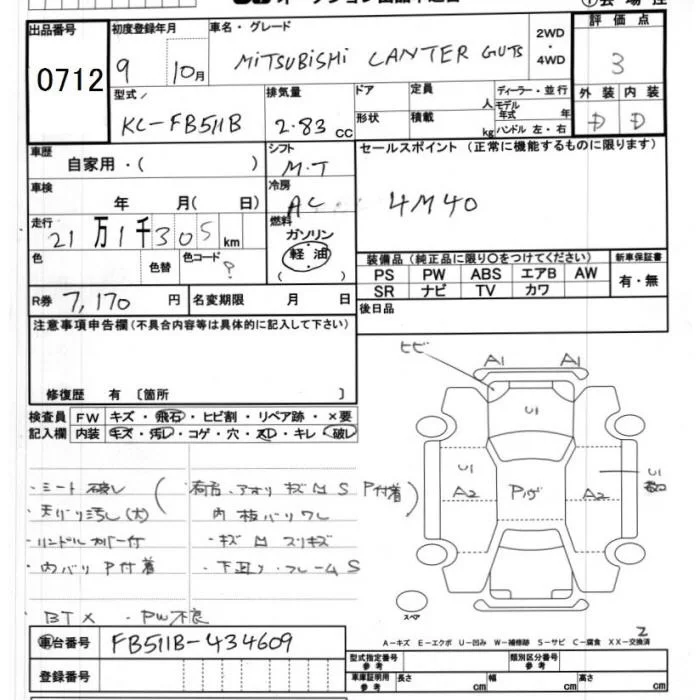 出品番号
0712
初度登録年月
9 10月
車名・グレード
MiTSUBiSHi CANTER GUTS
2WD
・
4WD
評価点
3
型式
KC-FB511B
排気量
2.83 CC
ドア
形状
定員 人
積載 kg
ディーラー・並行
モデル
年式 年
ハンドル 左・右
外装 内装
D D
車歴
自家用・( )
シフト
M.T
セールスポイント (正常に機能するものに限ります)
4M40
車検
年 月( 日)
冷房
AC
走行
21万1千305km
燃料
ガソリン
軽油
( )
色
色替
色コード
?
装備品 (純正品に限り○をつけてください)
PS PW ABS エアB AW
SR ナビ TV カワ
新車保証書
有・無
R券 7,170 円
名変期限 月 日
後日品
注意事項申告欄(不具合内容等は具体的に記入して下さい)
修復歴 有 〔箇所 〕
検査員
記入欄
FW キズ・飛石・ヒビ割・リペア跡・×要
内装 キズ・汚レ・コゲ・穴・スレ・キレ・破レ
・シート破レ
・天バリ汚し(大)
・ハンドルカバー付
・内バリ P付着
荷台・アオリ キズ凹S P付着
内板バリワレ
・キズ凹スリキズ
・下廻り・フレームS
BTX ・PW不良
ヒビ
A1 A1
U1
U1
A2
A2
U1
スペア
2
A-キズ E-エクボ U-凹み W-補修跡 S-サビ C-腐食 XX-交換済
車台番号
FB511B-434609
登録番号
型式指定番号
参考
類別区分番号
参考
車庫証明用
参考
長さ cm
幅 cm
高さ cm